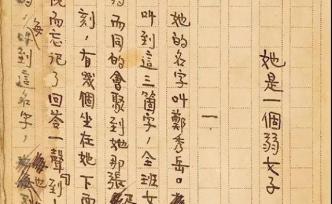 她是一個弱女子
一
她的名字叫鄭秀岳。
叫到這三箇字，全班女
而同的會聚到她那張
刻，有幾個坐在她下面
而忘記了回答一聲到
到這名字，